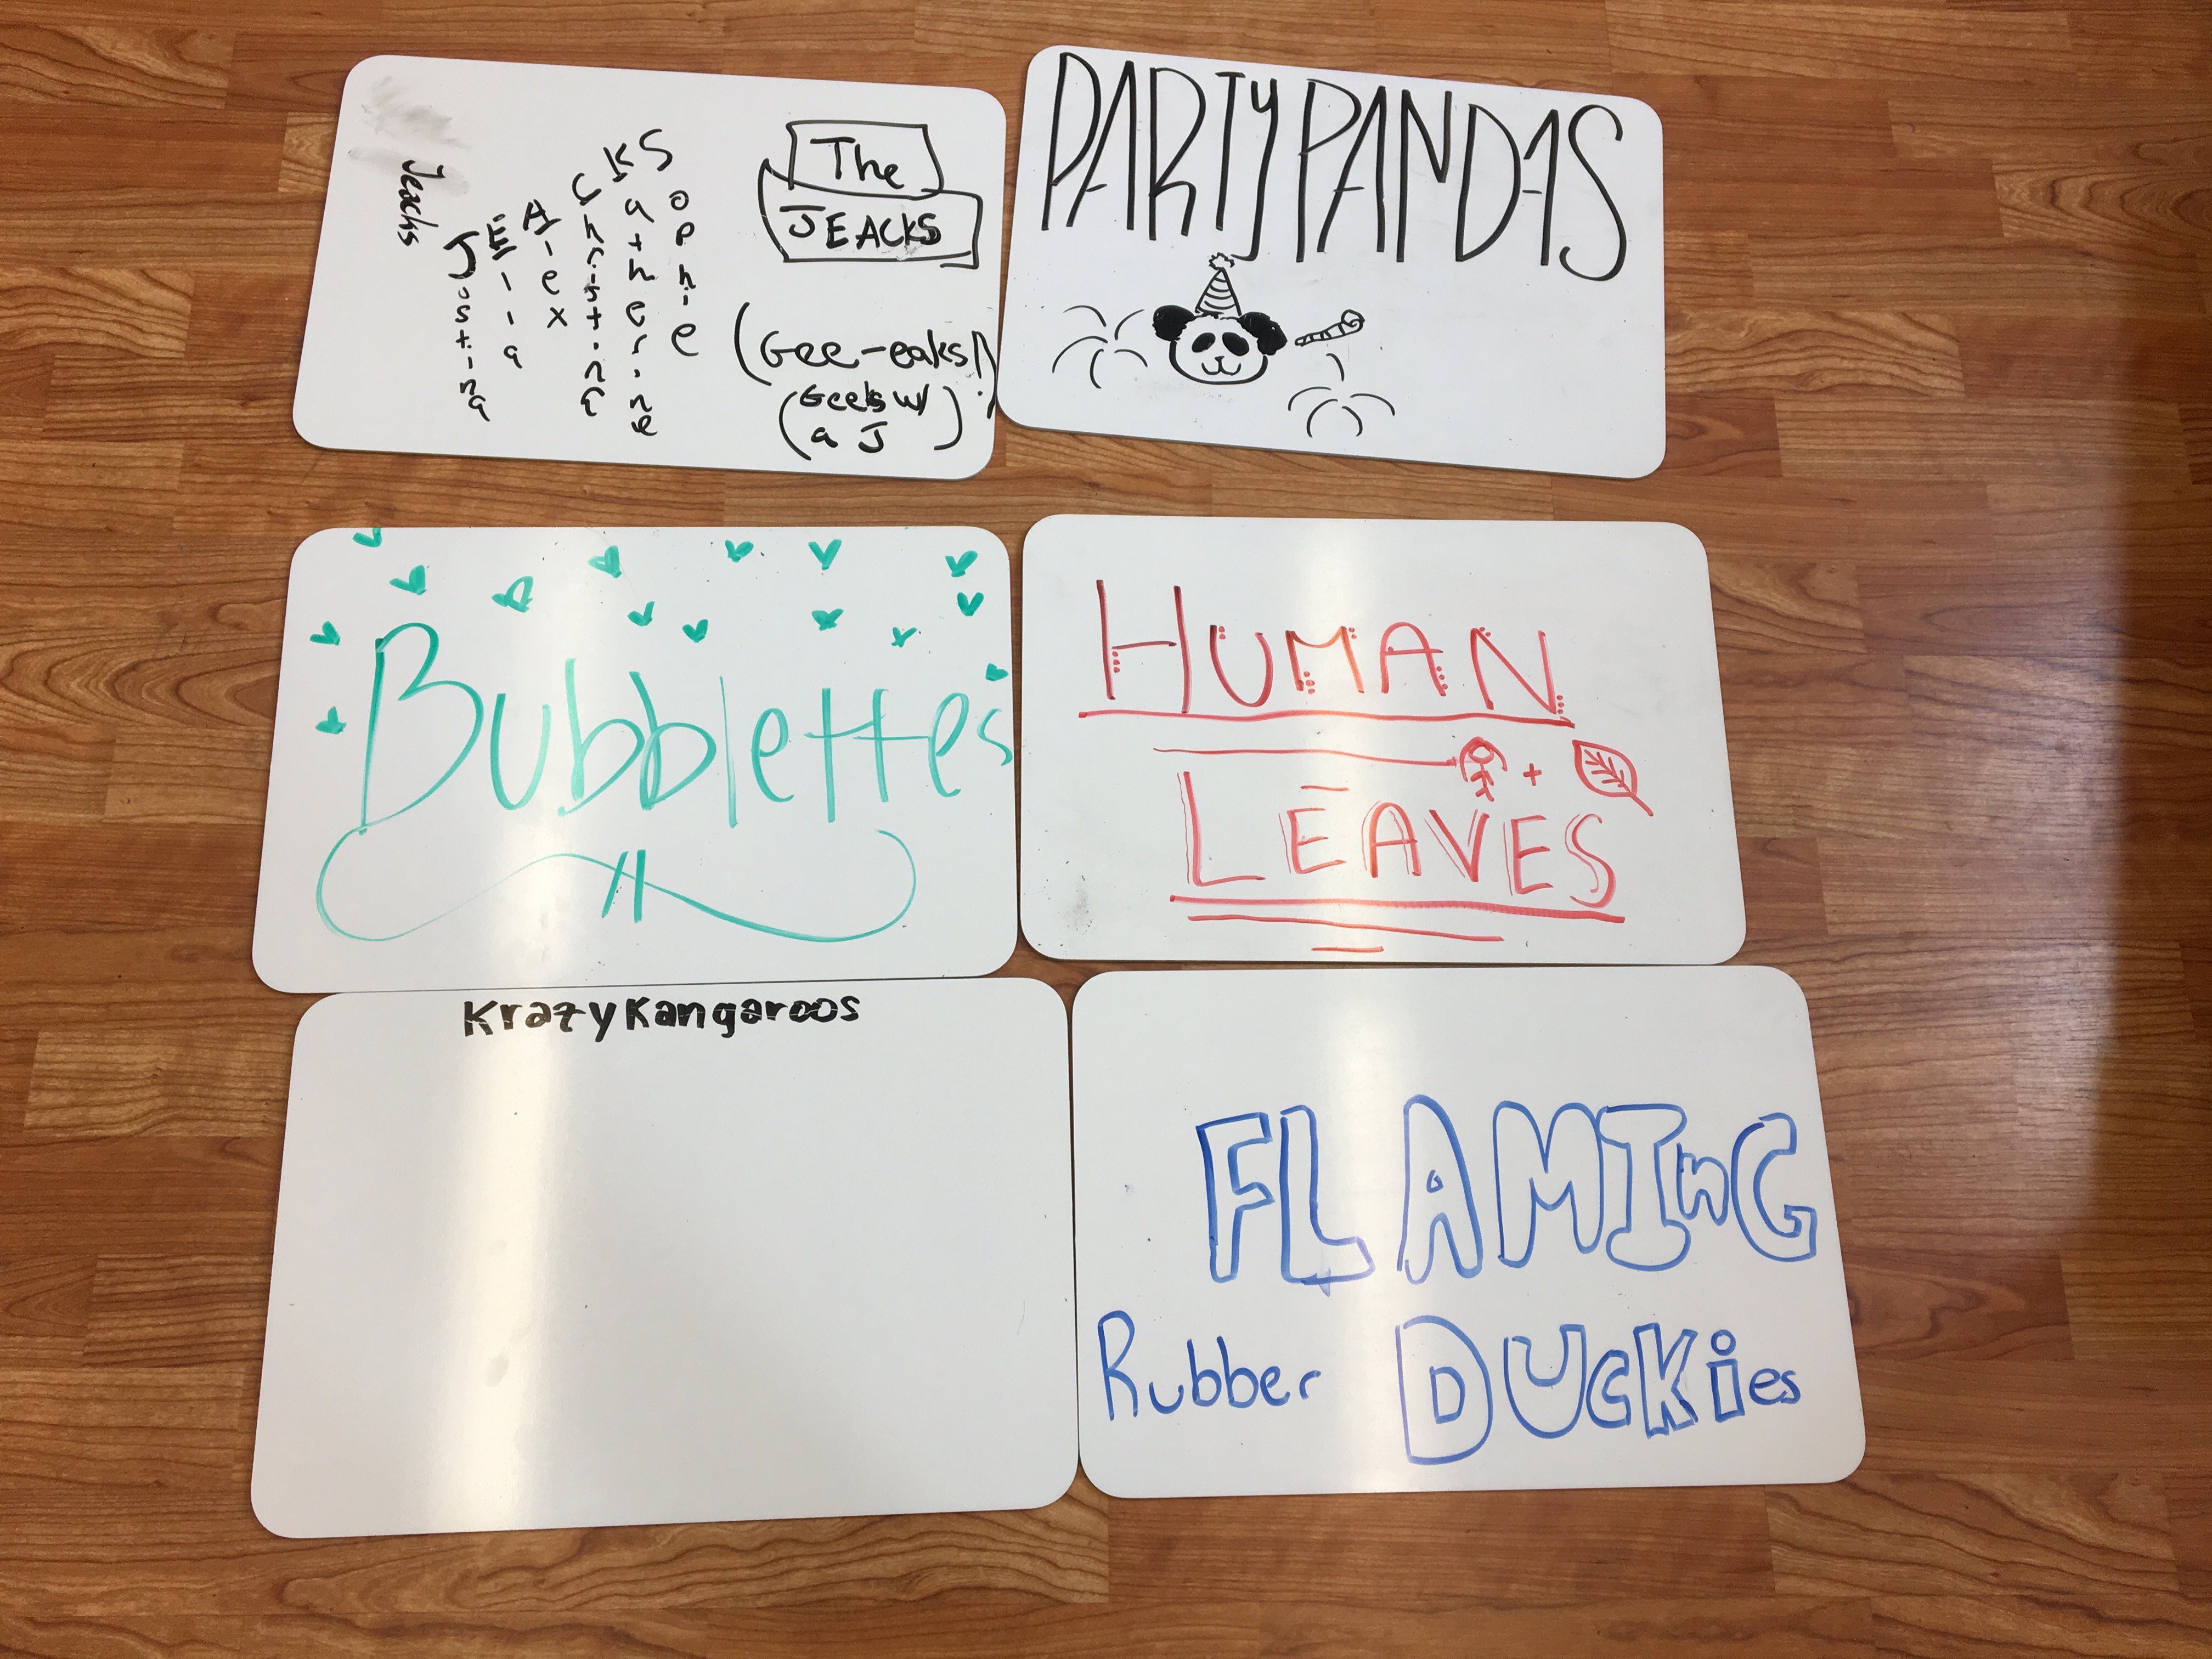 Jeacks
Justina
Ella
Alex
Christina
Katherine
Sophie
The
JEACKS
(Gee-eaks!)
(Geeks w/
a J)
PARTY PANDAS
Bubblettes
HUMAN
+
LEAVES
Krazy Kangaroos
FLAMInG
Rubber DUCKies